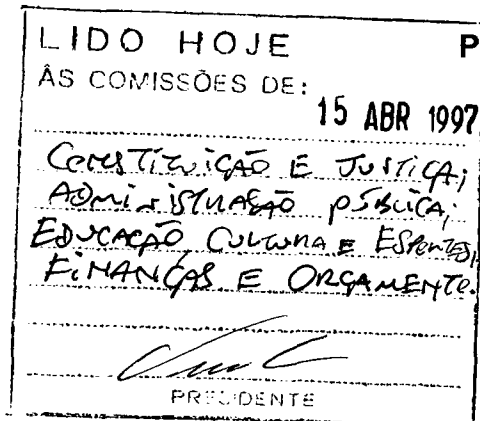 LIDO HOJE P
ÀS COMISSÕES DE:
15 ABR 1997
CONSTITUIÇÃO E JUSTIÇA;
ADMINISTRAÇÃO PÚBLICA;
EDUCAÇÃO, CULTURA E ESPORTES;
FINANÇAS E ORÇAMENTO.
PRESIDENTE